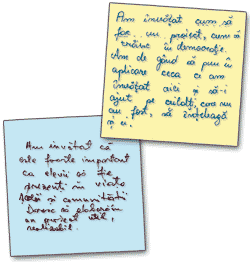 Am învățat cum să
fac un proiect, cum să
trăiesc în democrație.
Am de gând să pun în
aplicare ceea ce am
învățat aici și să-i
ajut pe ceilalți, care nu
au fost, să înțeleagă
și ei.
Am învățat că
este foarte important
ca elevii să fie
prezenți în viața
și comunității
Doresc să elaborăm
un proiect util,
realizabil.